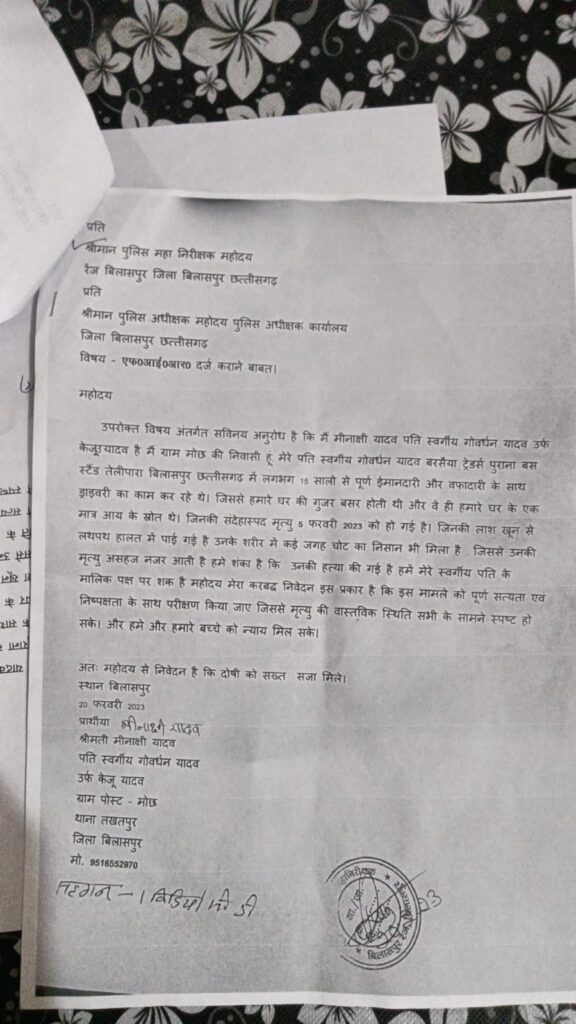 प्रति
श्रीमान पुलिस महा निरीक्षक महोदय
रेंज बिलासपुर जिला बिलासपुर छत्तीसगढ़
प्रति
श्रीमान पुलिस अधीक्षक महोदय पुलिस अधीक्षक कार्यालय
जिला बिलासपुर छत्तीसगढ़
विषय - एफ0आई0आर0 दर्ज कराने बाबत।
महोदय
उपरोक्त विषय अंतर्गत सविनय अनुरोध है कि मैं मीनाक्षी यादव पति स्वर्गीय गोवर्धन यादव उर्फ
केजू यादव है मैं ग्राम मोछ की निवासी हूं, मेरे पति स्वर्गीय गोवर्धन यादव बरसैया ट्रेडर्स पुराना बस
स्टैंड तेलीपारा बिलासपुर छत्तीसगढ़ में लगभग 15 सालो से पूर्ण ईमानदारी और वफादारी के साथ
ड्राइवरी का काम कर रहे थे। जिससे हमारे घर की गुजर बसर होती थी और वे ही हमारे घर के एक
मात्र आय के स्रोत थे। जिनकी संदेहास्पद मृत्यु 5 फरवरी 2023 को हो गई है। जिनकी लाश खून से
लथपथ हालत में पाई गई है उनके शरीर में कई जगह चोट का निसान भी मिला है . जिससे उनकी
मृत्यु असहज नजर आती है हमे शंका है कि उनकी हत्या की गई है हमें मेरे स्वर्गीय पति के
मालिक पक्ष पर शक है महोदय मेरा करबद्ध निवेदन इस प्रकार है कि इस मामले को पूर्ण सत्यता एवं
निष्पक्षता के साथ परीक्षण किया जाए जिससे मृत्यु की वास्तविक स्थिति सभी के सामने स्पष्ट हो
सके। और हमे और हमारे बच्चे को न्याय मिल सके।
अतः महोदय से निवेदन है कि दोषी को सख्त सजा मिले।
स्थान बिलासपुर
20 फरवरी 2023
प्रार्थीया मीनाक्षी यादव
श्रीमती मीनाक्षी यादव
पति स्वर्गीय गोवर्धन यादव
उर्फ केजू यादव
ग्राम पोस्ट - मोछ
थाना तखतपुर
जिला बिलासपुर
मो. 9516552970